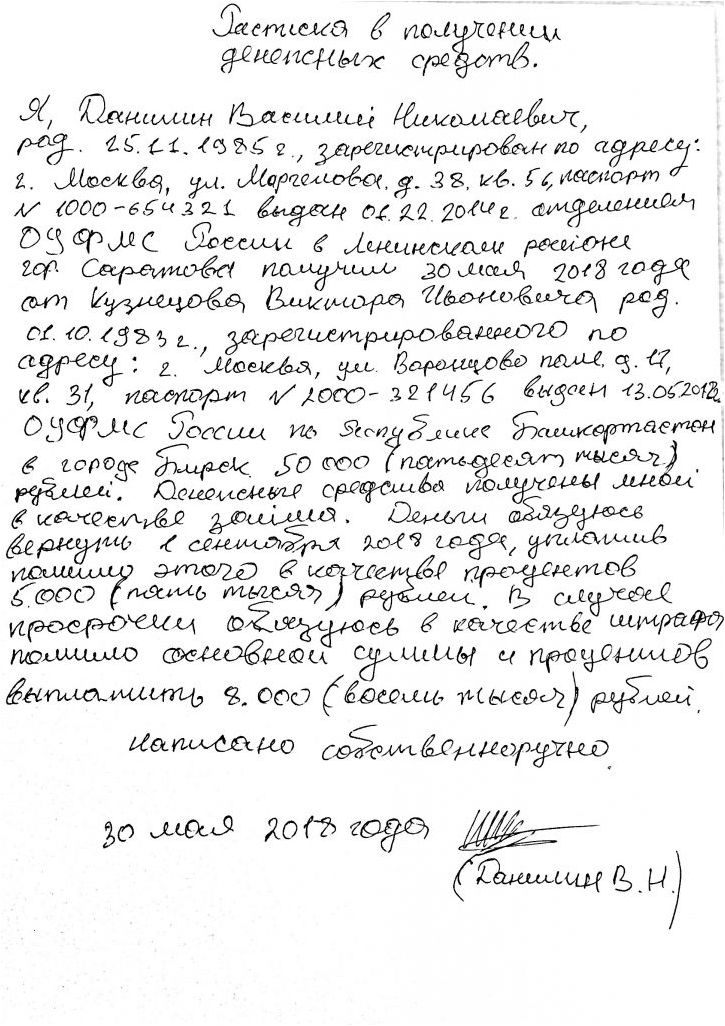 Расписка в получении
денежных средств.
Я, Данилин Василий Николаевич,
род. 25.11.1985 г., зарегистрирован по адресу:
г. Москва, ул. Маргелова, д. 38, кв. 56, паспорт
N 1000-654321 выдан 01.22.2014 г. отделением
ОУФМС России в Ленинском районе
гор. Саратова получил 30 мая 2018 года
от Кузнецова Виктора Ивановича род.
01.10.1983 г., зарегистрированного по
адресу: г. Москва, ул. Воронцово поле, д. 17,
кв. 31, паспорт N 2000-321456 выдан 13.05.2012
ОУФМС России по Республике Башкортостан
в городе Бирск 50 000 (пятьдесят тысяч)
рублей. Денежные средства получены мной
в качестве займа. Деньги обязуюсь
вернуть 1 сентября 2018 года, уплатив
помимо этого в качестве процентов
5.000 (пять тысяч) рублей. В случае
просрочки обязуюсь в качестве штрафа
помимо основной суммы и процентов
выплатить 8.000 (восемь тысяч) рублей.
Написано собственноручно.
30 мая 2018 года
(Данилин В.Н.)